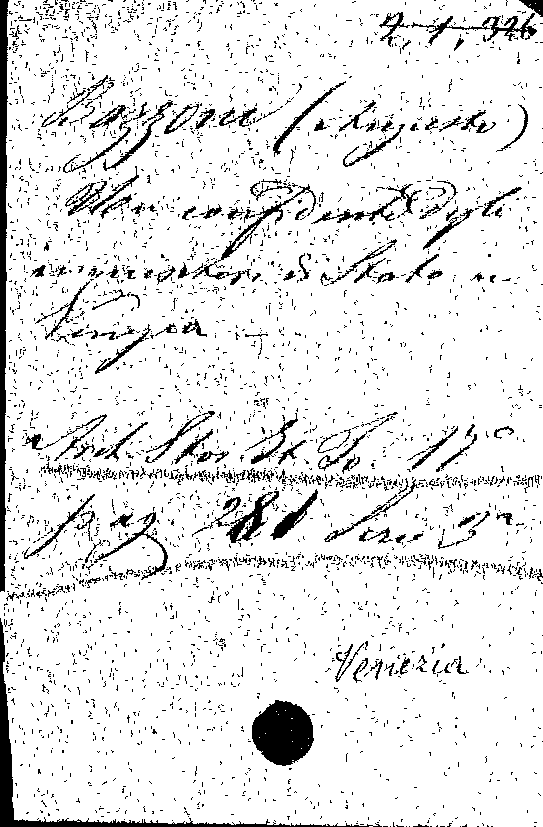 2, 1, 326
Bazzoni (Augusto)
Un confidente degli
inquisitori di Stato in
Venezia
Arch. Stor. It. To. 17º
pag. 281 Serie 3ª
Venezia